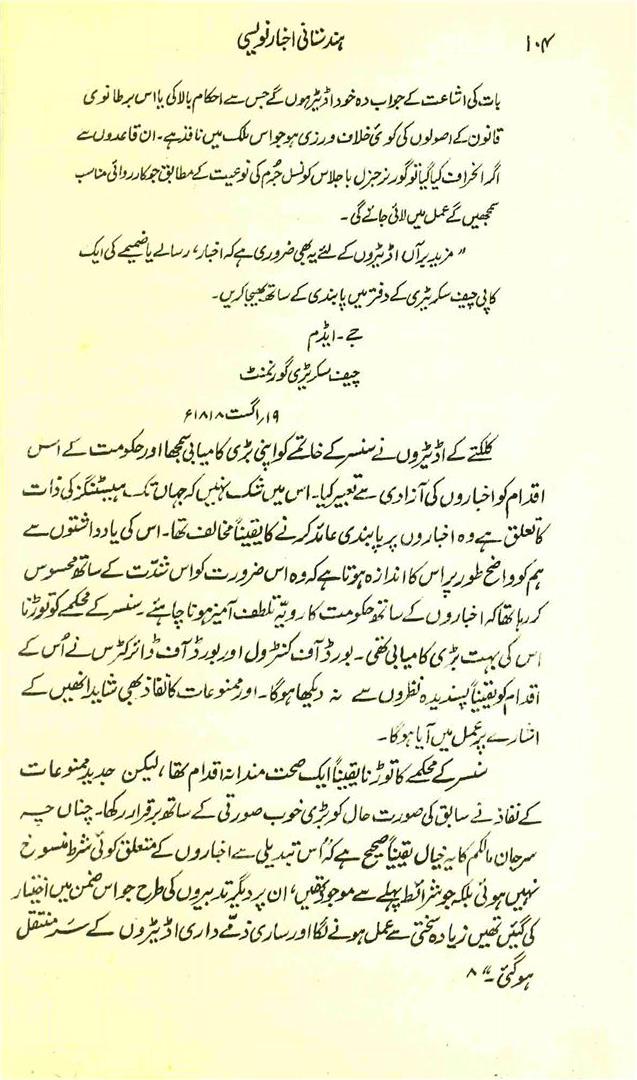 ۱۰۴
ہندستانی اخبار نویسی
بات کی اشاعت کے جواب دہ خود اڈیٹر ہوں گے جس سے احکام بالا کی یا اس برطانوی
قانون کے اصولوں کی کوئی خلاف ورزی ہو جو اس ملک میں نافذ ہے۔ ان قاعدوں سے
اگر انحراف کیا گیا تو گورنر جنرل با جلاس کونسل جُرم کی نوعیت کے مطابق جو کارروائی مناسب
سمجھیں گے عمل میں لائی جائے گی۔
" مزید برآں اڈیٹروں کے لئے یہ بھی ضروری ہے کہ اخبار، رسالے یا ضمیمے کی ایک
کاپی چیف سکریٹری کے دفتر میں پابندی کے ساتھ بھیجا کریں۔
جے۔ ایڈم
چیف سکریٹری گورنمنٹ
۱۹؍ اگست ۱۸۱۸ء
کلکتے کے اڈیٹروں نے سنسر کے خاتمے کو اپنی بڑی کامیابی سمجھا اور حکومت کے اس
اقدام کو اخباروں کی آزادی سے تعبیر کیا۔ اس میں شک نہیں کہ جہاں تک ہیسٹنگز کی ذات
کا تعلق ہے وہ اخباروں پر پابندی عائد کرنے کا یقیناً مخالف تھا۔ اس کی یادداشتوں سے
ہم کو واضح طور پر اس کا اندازہ ہوتا ہے کہ وہ اس ضرورت کو اس شدّت کے ساتھ محسوس
کر رہا تھا کہ اخباروں کے ساتھ حکومت کا رویّہ تلطف آمیز ہونا چاہئے۔ سنسر کے محکمے کو توڑنا
اس کی بہت بڑی کامیابی تھی۔ بورڈ آف کنٹرول اور بورڈ آف ڈائرکٹرس نے اُس کے
اقدام کو یقیناً پسندیدہ نظروں سے نہ دیکھا ہوگا۔ اور ممنوعات کا نفاذ بھی شاید انھیں کے
اشارے پر عمل میں آیا ہوگا۔
سنسر کے محکمے کا توڑنا یقیناً ایک صحت مندانہ اقدام تھا، لیکن جدید ممنوعات
کے نفاذ نے سابق کی صورت حال کو بڑی خوب صورتی کے ساتھ برقرار رکھا۔ چناں چہ
سرجان مالکم کا یہ خیال یقیناً صحیح ہے کہ "اُس تبدیلی سے اخباروں کے متعلق کوئی شرط منسوخ
نہیں ہوئی بلکہ جو شرائط پہلے سے موجود تھیں، ان پر دیگر تدبیروں کی طرح جو اس ضمن میں اختیار
کی گئیں تھیں زیادہ سختی سے عمل ہونے لگا اور ساری ذمّے داری اڈیٹروں کے سَر منتقل
ہو گئی۔" ۸